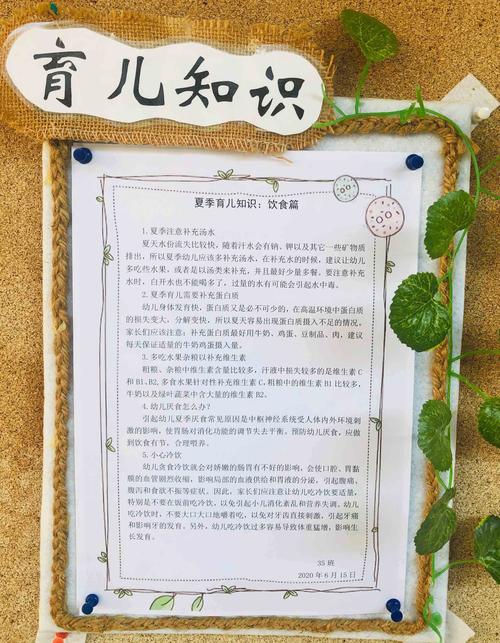 育儿知识
夏季育儿知识：饮食篇
1.夏季注意补充汤水
夏天水份流失比较快，随着汗水会有钠、钾以及其它一些矿物质
排出，所以夏季幼儿应该多补充汤水，在补充水的时候，建议让幼儿
多吃些水果，或者是以汤类来补充，并且最好少量多餐，要注意补充
水时，白开水也不能喝多了，过量的水有可能会引起水中毒。
2.夏季育儿需要补充蛋白质
幼儿身体发育快，蛋白质又是必不可少的，在高温环境中蛋白质
的损失变大，分解变快，所以夏天容易出现蛋白质摄入不足的情况。
家长们应该注意：补充蛋白质最好用牛奶、鸡蛋、豆制品、肉，建议
每天保证适量的牛奶鸡蛋摄入量。
3.多吃水果杂粮以补充维生素
粗粮、杂粮中维生素含量比较多，汗液中损失较多的是维生素 C
和 B1、B2，多食水果针对性补充维生素 C，粗粮中的维生素 B1 比较多，
牛奶以及绿叶蔬菜中含大量的维生素 B2。
4.幼儿厌食怎么办？
引起幼儿夏季厌食常见原因是中枢神经系统受人体内外环境刺
激的影响，使胃肠对消化功能的调节失去平衡。预防幼儿厌食，应做
到饮食有节、合理喂养。
5.小心冷饮
幼儿贪食冷饮就会对娇嫩的肠胃有不好的影响，会使口腔、胃黏
膜的血管剧烈收缩，影响局部的血液供给和胃液的分泌，引起腹痛、
腹泻和食欲不振等症状。因此，家长们应注意让幼儿吃冷饮要适量，
特别是不要在饭前吃冷饮，以免引起小儿消化紊乱和营养失调。幼儿
吃冷饮时，不要大口大口地嚼着吃，以免对牙齿直接刺激，引起牙痛
和影响牙的发育。另外，幼儿吃冷饮过多容易导致体重猛增，影响生
长发育。
35 班
2020 年 6 月 15 日